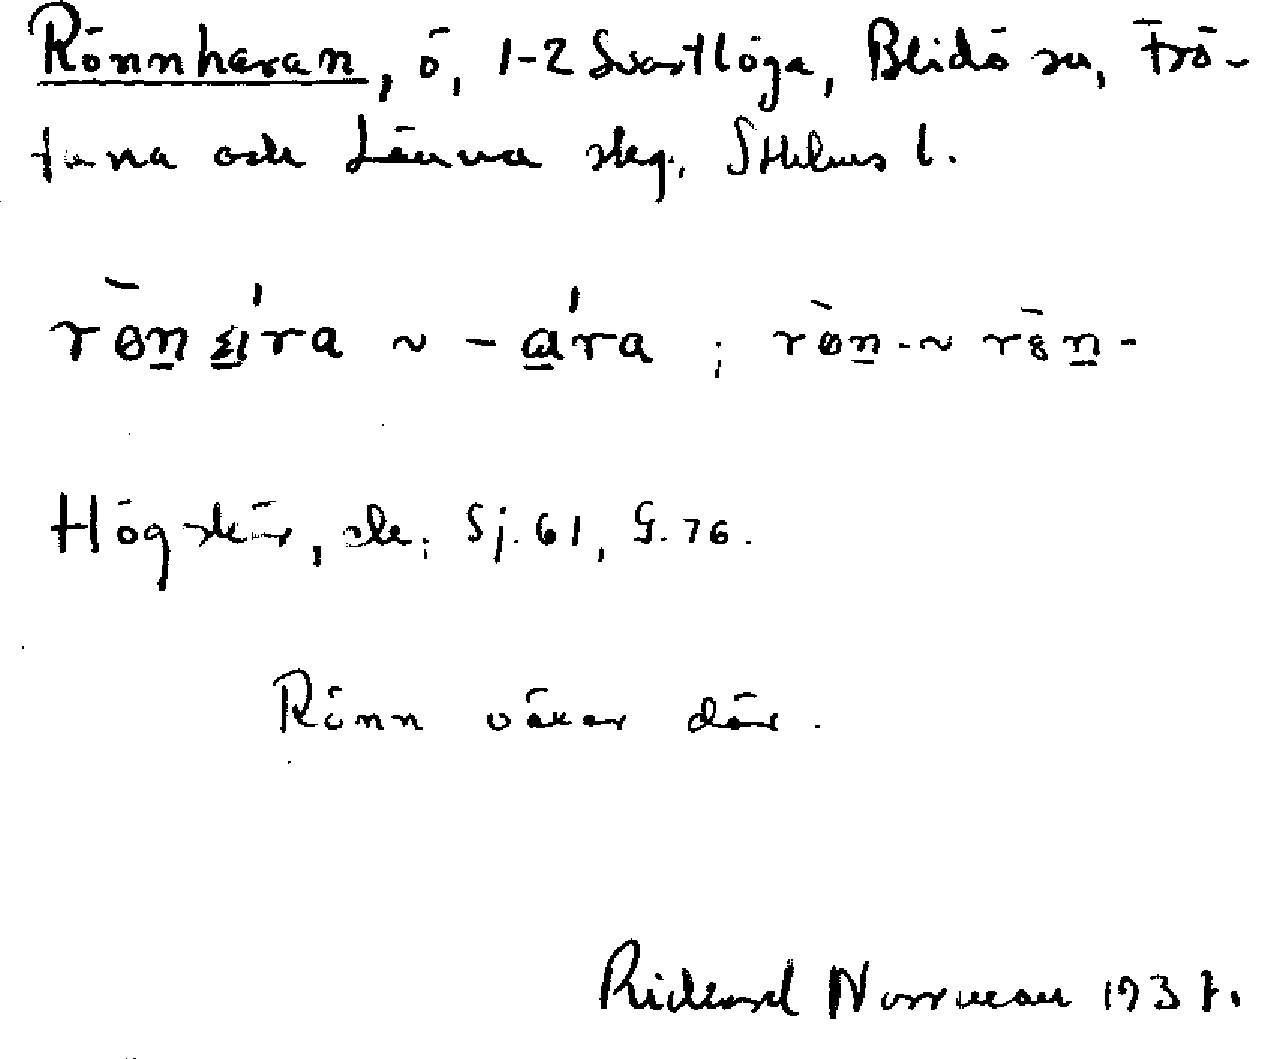 Rönnharan, ö, 1-2 Svartlöga, Blidö sn, Frö-
tuna och Länna skg, Sthlms l.
rön ára ~ - ára ; rön- ~ rön-
Högskär, sk; Sj. 61, G. 76.
Rönn växer där.
Rickard Norrman 1937.